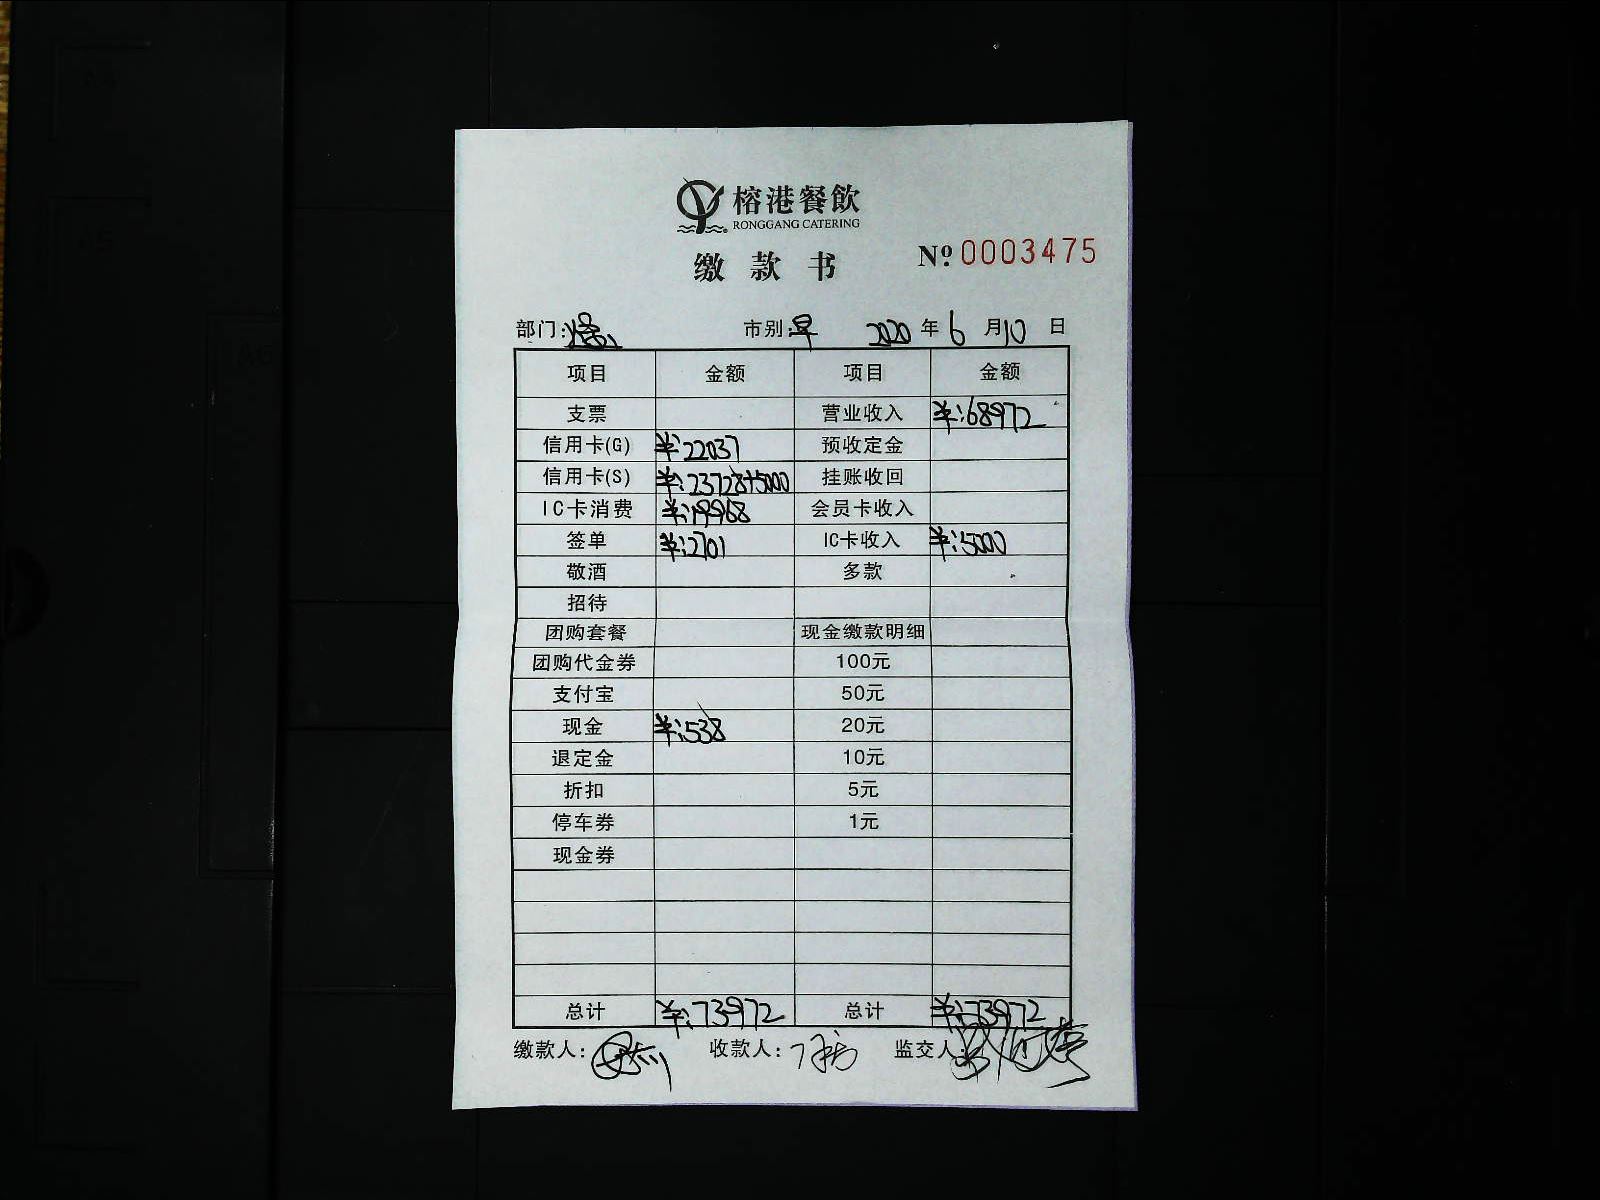 榕港餐飲
RONGGANG CATERING
缴款书 № 0003475
部门: 市别:早 2020年6月10日
项目 金额 项目 金额
支票 营业收入 ¥:68972
信用卡(G) ¥:22037 预收定金
信用卡(S) ¥:23728+5000 挂账收回
IC卡消费 ¥:19968 会员卡收入
签单 ¥:2701 IC卡收入 ¥:5000
敬酒 多款
招待
团购套餐 现金缴款明细
团购代金券 100元
支付宝 50元
现金 ¥:538 20元
退定金 10元
折扣 5元
停车券 1元
现金券
总计 ¥:73972 总计 ¥:73972
缴款人: 收款人: 监交人: